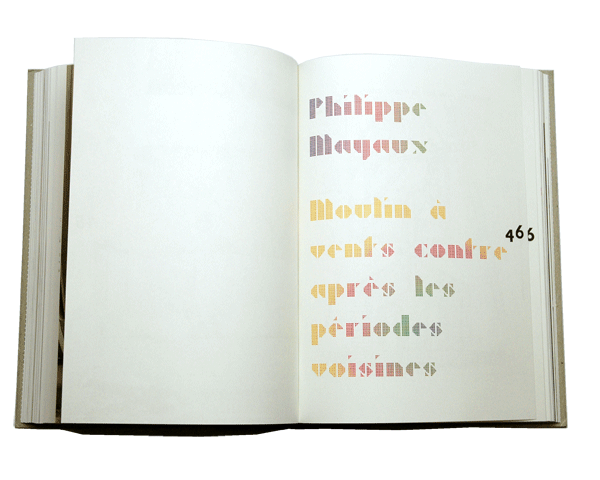 Philippe
Mayaux
Moulin à
vents contre
465
après les
périodes
voisines